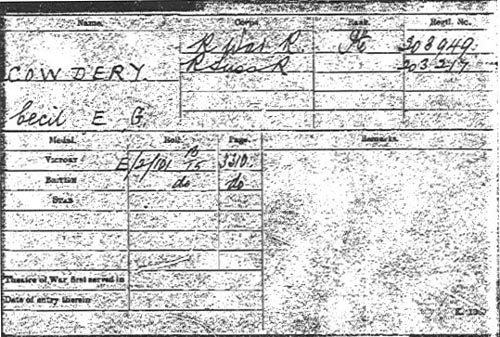 Name. Corps. Rank. Regtl. No.
R War R. Pte 308949.
COWDERY R Suss R 203217.
Cecil E G
Medal. Roll. Page. Remarks.
VICTORY E/2/101 B 15 3310.
BRITISH do do
STAR
Theatre of War first served in
Date of entry therein